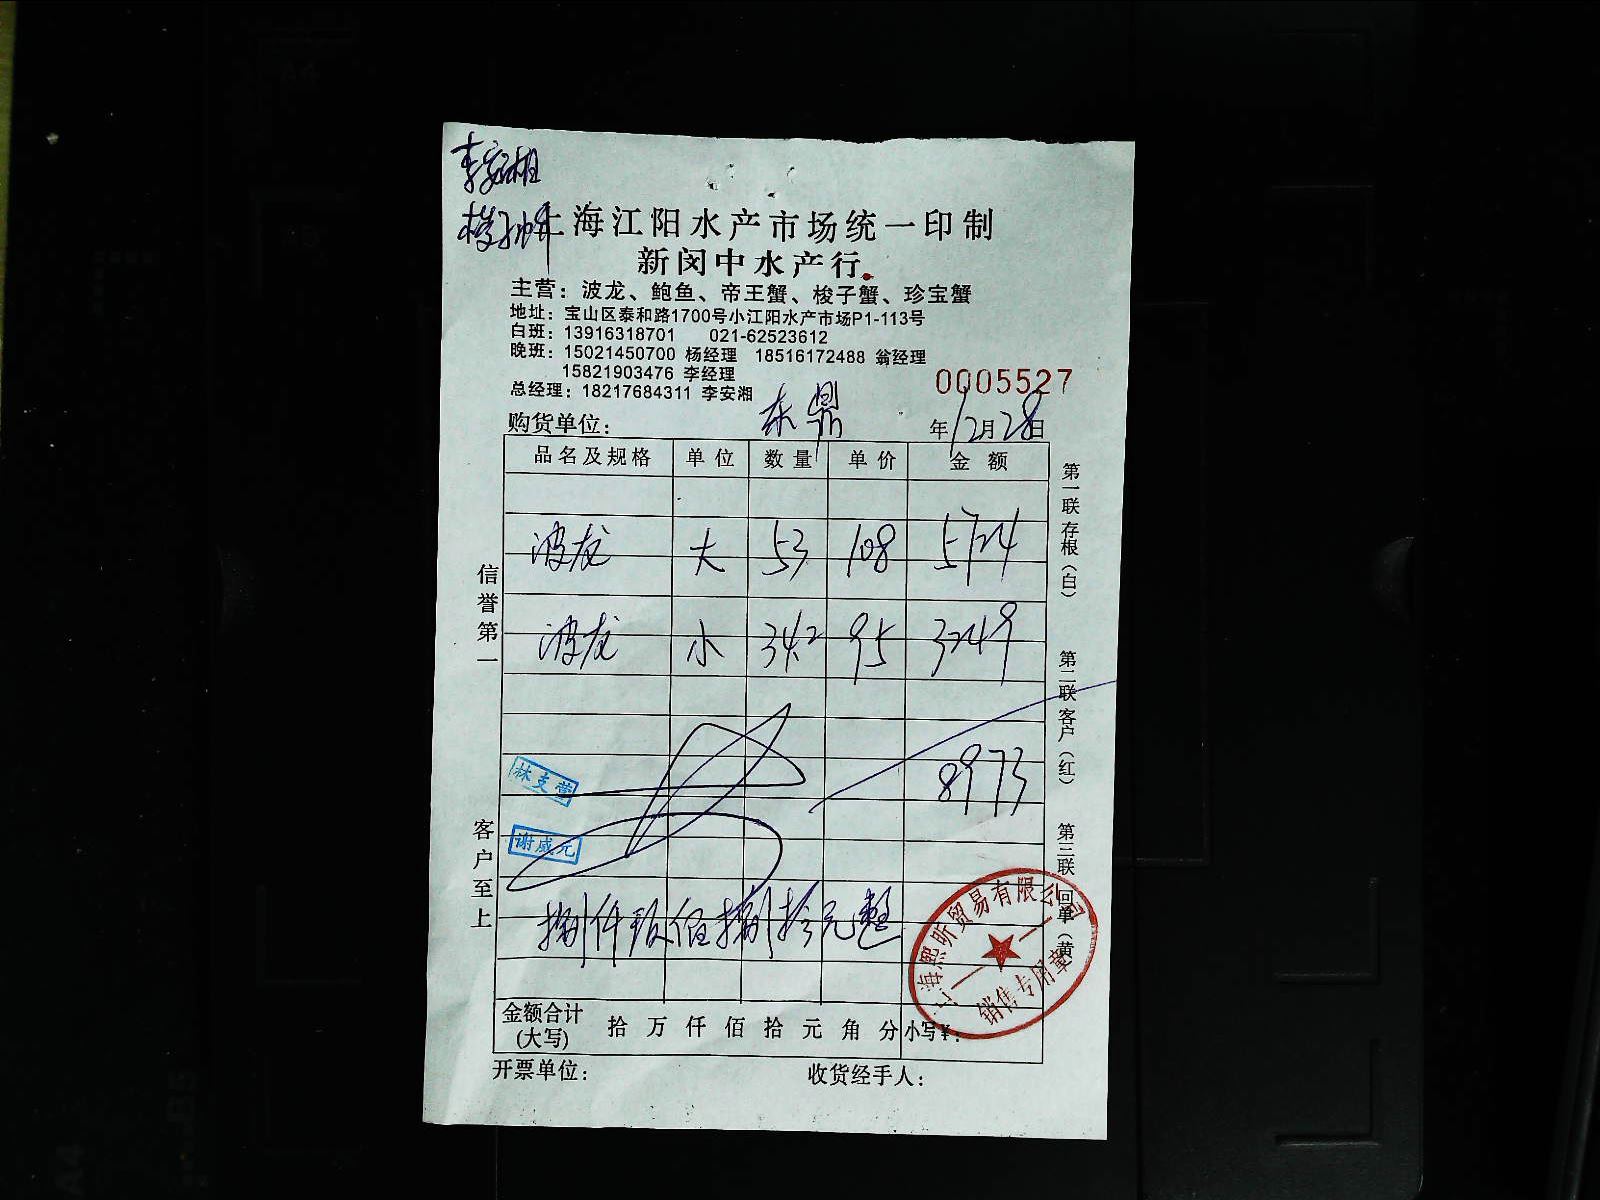 李安湘
上海江阳水产市场统一印制
新闵中水产行
主营：波龙、鲍鱼、帝王蟹、梭子蟹、珍宝蟹
地址：宝山区泰和路1700号小江阳水产市场P1-113号
白班：13916318701 021-62523612
晚班：15021450700 杨经理 18516172488 翁经理
15821903476 李经理
总经理：18217684311 李安湘
0005527
购货单位：东鼎 年12月28日
品名及规格 单位 数量 单价 金额
波龙 大 53 108 5724
波龙 小 34.2 95 3249
8973
林支莹
谢威元
捌仟玖佰捌拾元整
金额合计(大写) 拾 万 仟 佰 拾 元 角 分 小写¥：
开票单位： 收货经手人：
信誉第一
客户至上
第一联 存根（白）
第二联 客户（红）
第三联 回单（黄
上海熙昕贸易有限公司
销售专用章